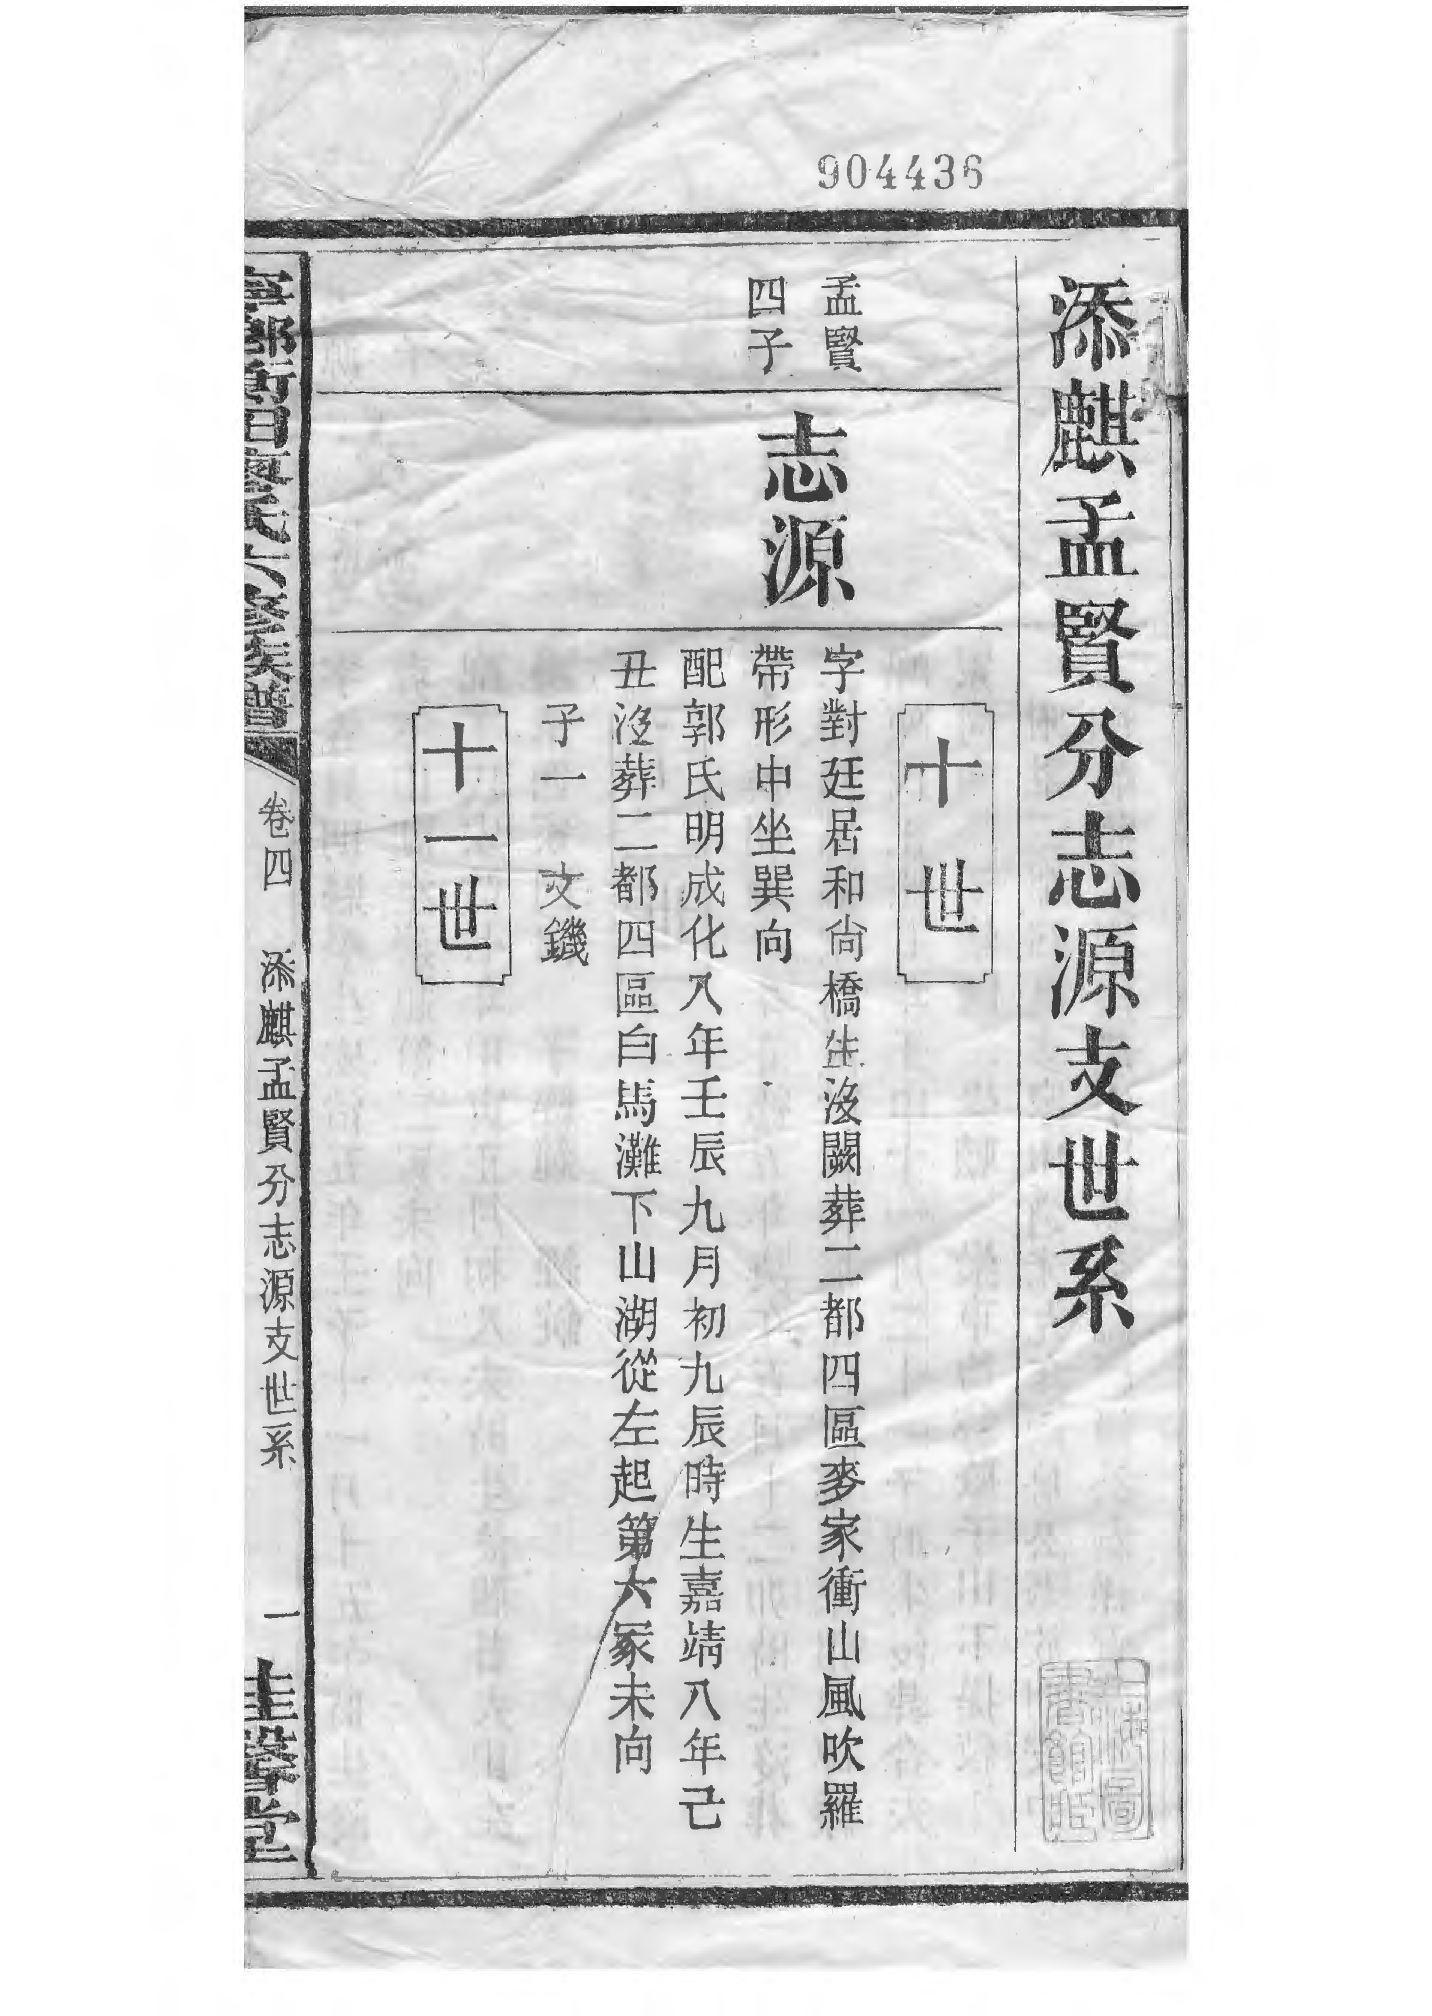 904436
添麒孟賢分志源支世系
十世
孟賢
四子
志源
字對廷居和尙橋生沒闕葬二都四區麥家衝山風吹羅
帶形中坐巽向
配郭氏明成化八年壬辰九月初九辰時生嘉靖八年己
丑沒葬二都四區白馬灘下山湖從左起第六冢未向
子一 文鐖
十一世
寧鄉衡田廖氏六修族譜
卷四 添麒孟賢分志源支世系 一
桂馨堂
上海圖
書館藏